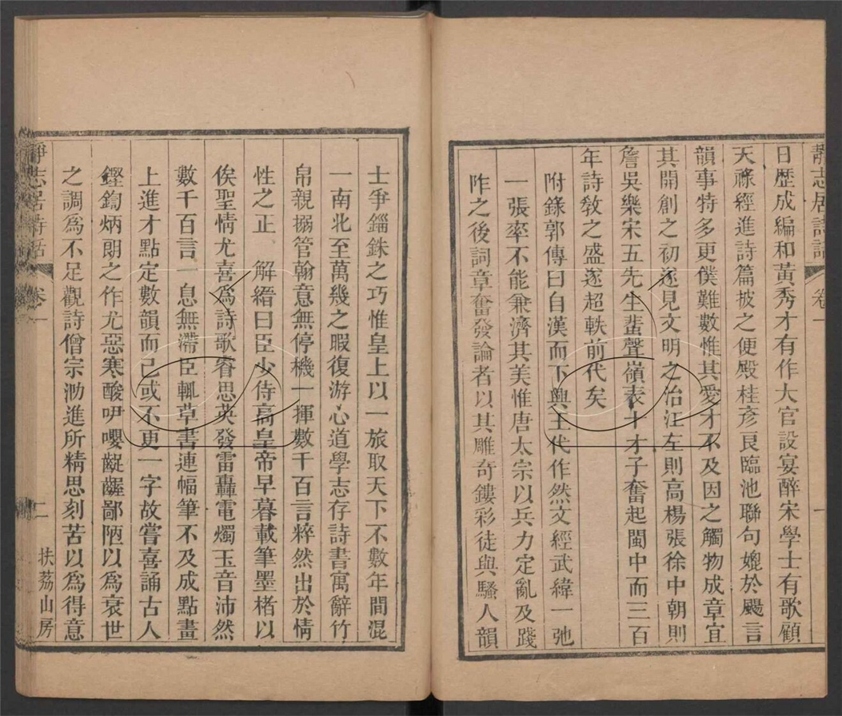 靜志居詩話
卷一
一
日歷成編和黃秀才有作大官設宴醉宋學士有歌顧
天祿經進詩篇披之便殿桂彥良臨池聯句媲於颺言
韻事特多更僕難數惟其愛才不及因之觸物成章宜
其開創之初遂見文明之治江左則高楊張徐中朝則
詹吳樂宋五先生蜚聲嶺表十才子奮起閩中而三百
年詩敎之盛遂超軼前代矣
附錄郭傳曰自漢而下興王代作然文經武緯一弛
一張率不能兼濟其美惟唐太宗以兵力定亂及踐
阼之後詞章奮發論者以其雕奇鏤彩徒與騷人韻
士爭錙銖之巧惟皇上以一旅取天下不數年間混
一南北至萬幾之暇復游心道學志存詩書寓辭竹
帛親搦管翰意無停機一揮數千百言粹然出於情
性之正 解縉曰臣少侍高皇帝早暮載筆墨楮以
俟聖情尤喜爲詩歌睿思英發雷轟電燭玉音沛然
數千百言一息無滯臣輒草書連幅筆不及成點畫
上進才點定數韻而已或不更一字故嘗喜誦古人
鏗鍧炳朗之作尤惡寒酸咿嚶齷齪鄙陋以爲衰世
之調爲不足觀詩僧宗泐進所精思刻苦以爲得意
靜志居詩話
卷一
二
扶荔山房